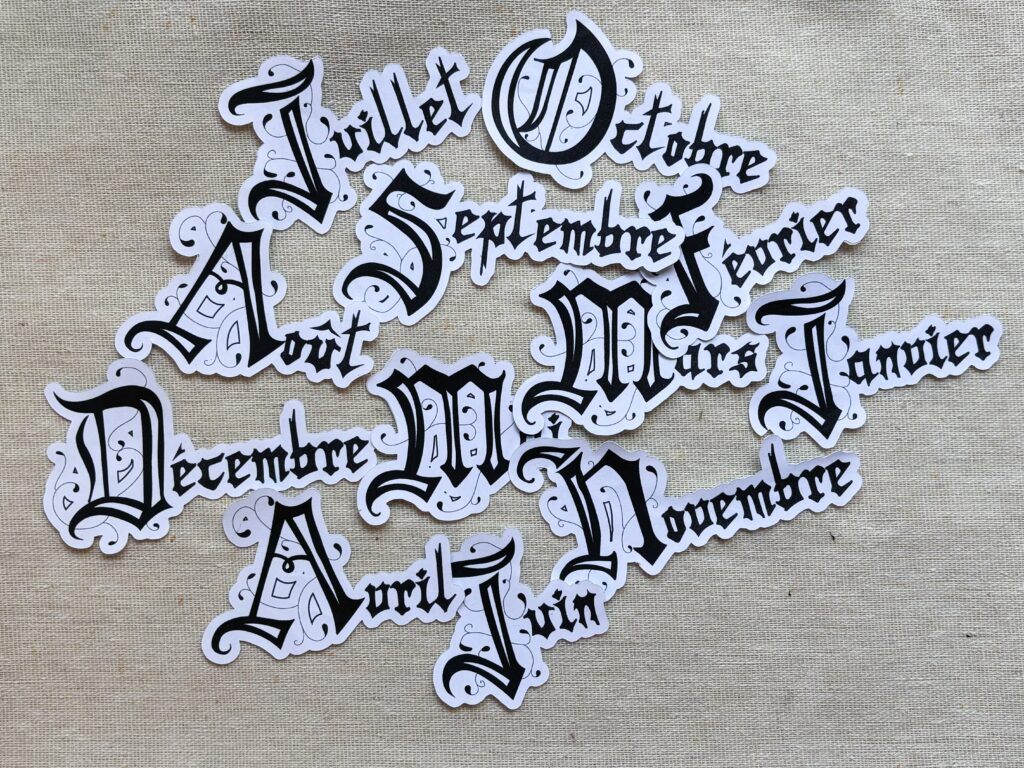 Juillet
Octobre
Septembre
Février
Août
Mars
Janvier
Décembre
M i
Novembre
Avril
Juin